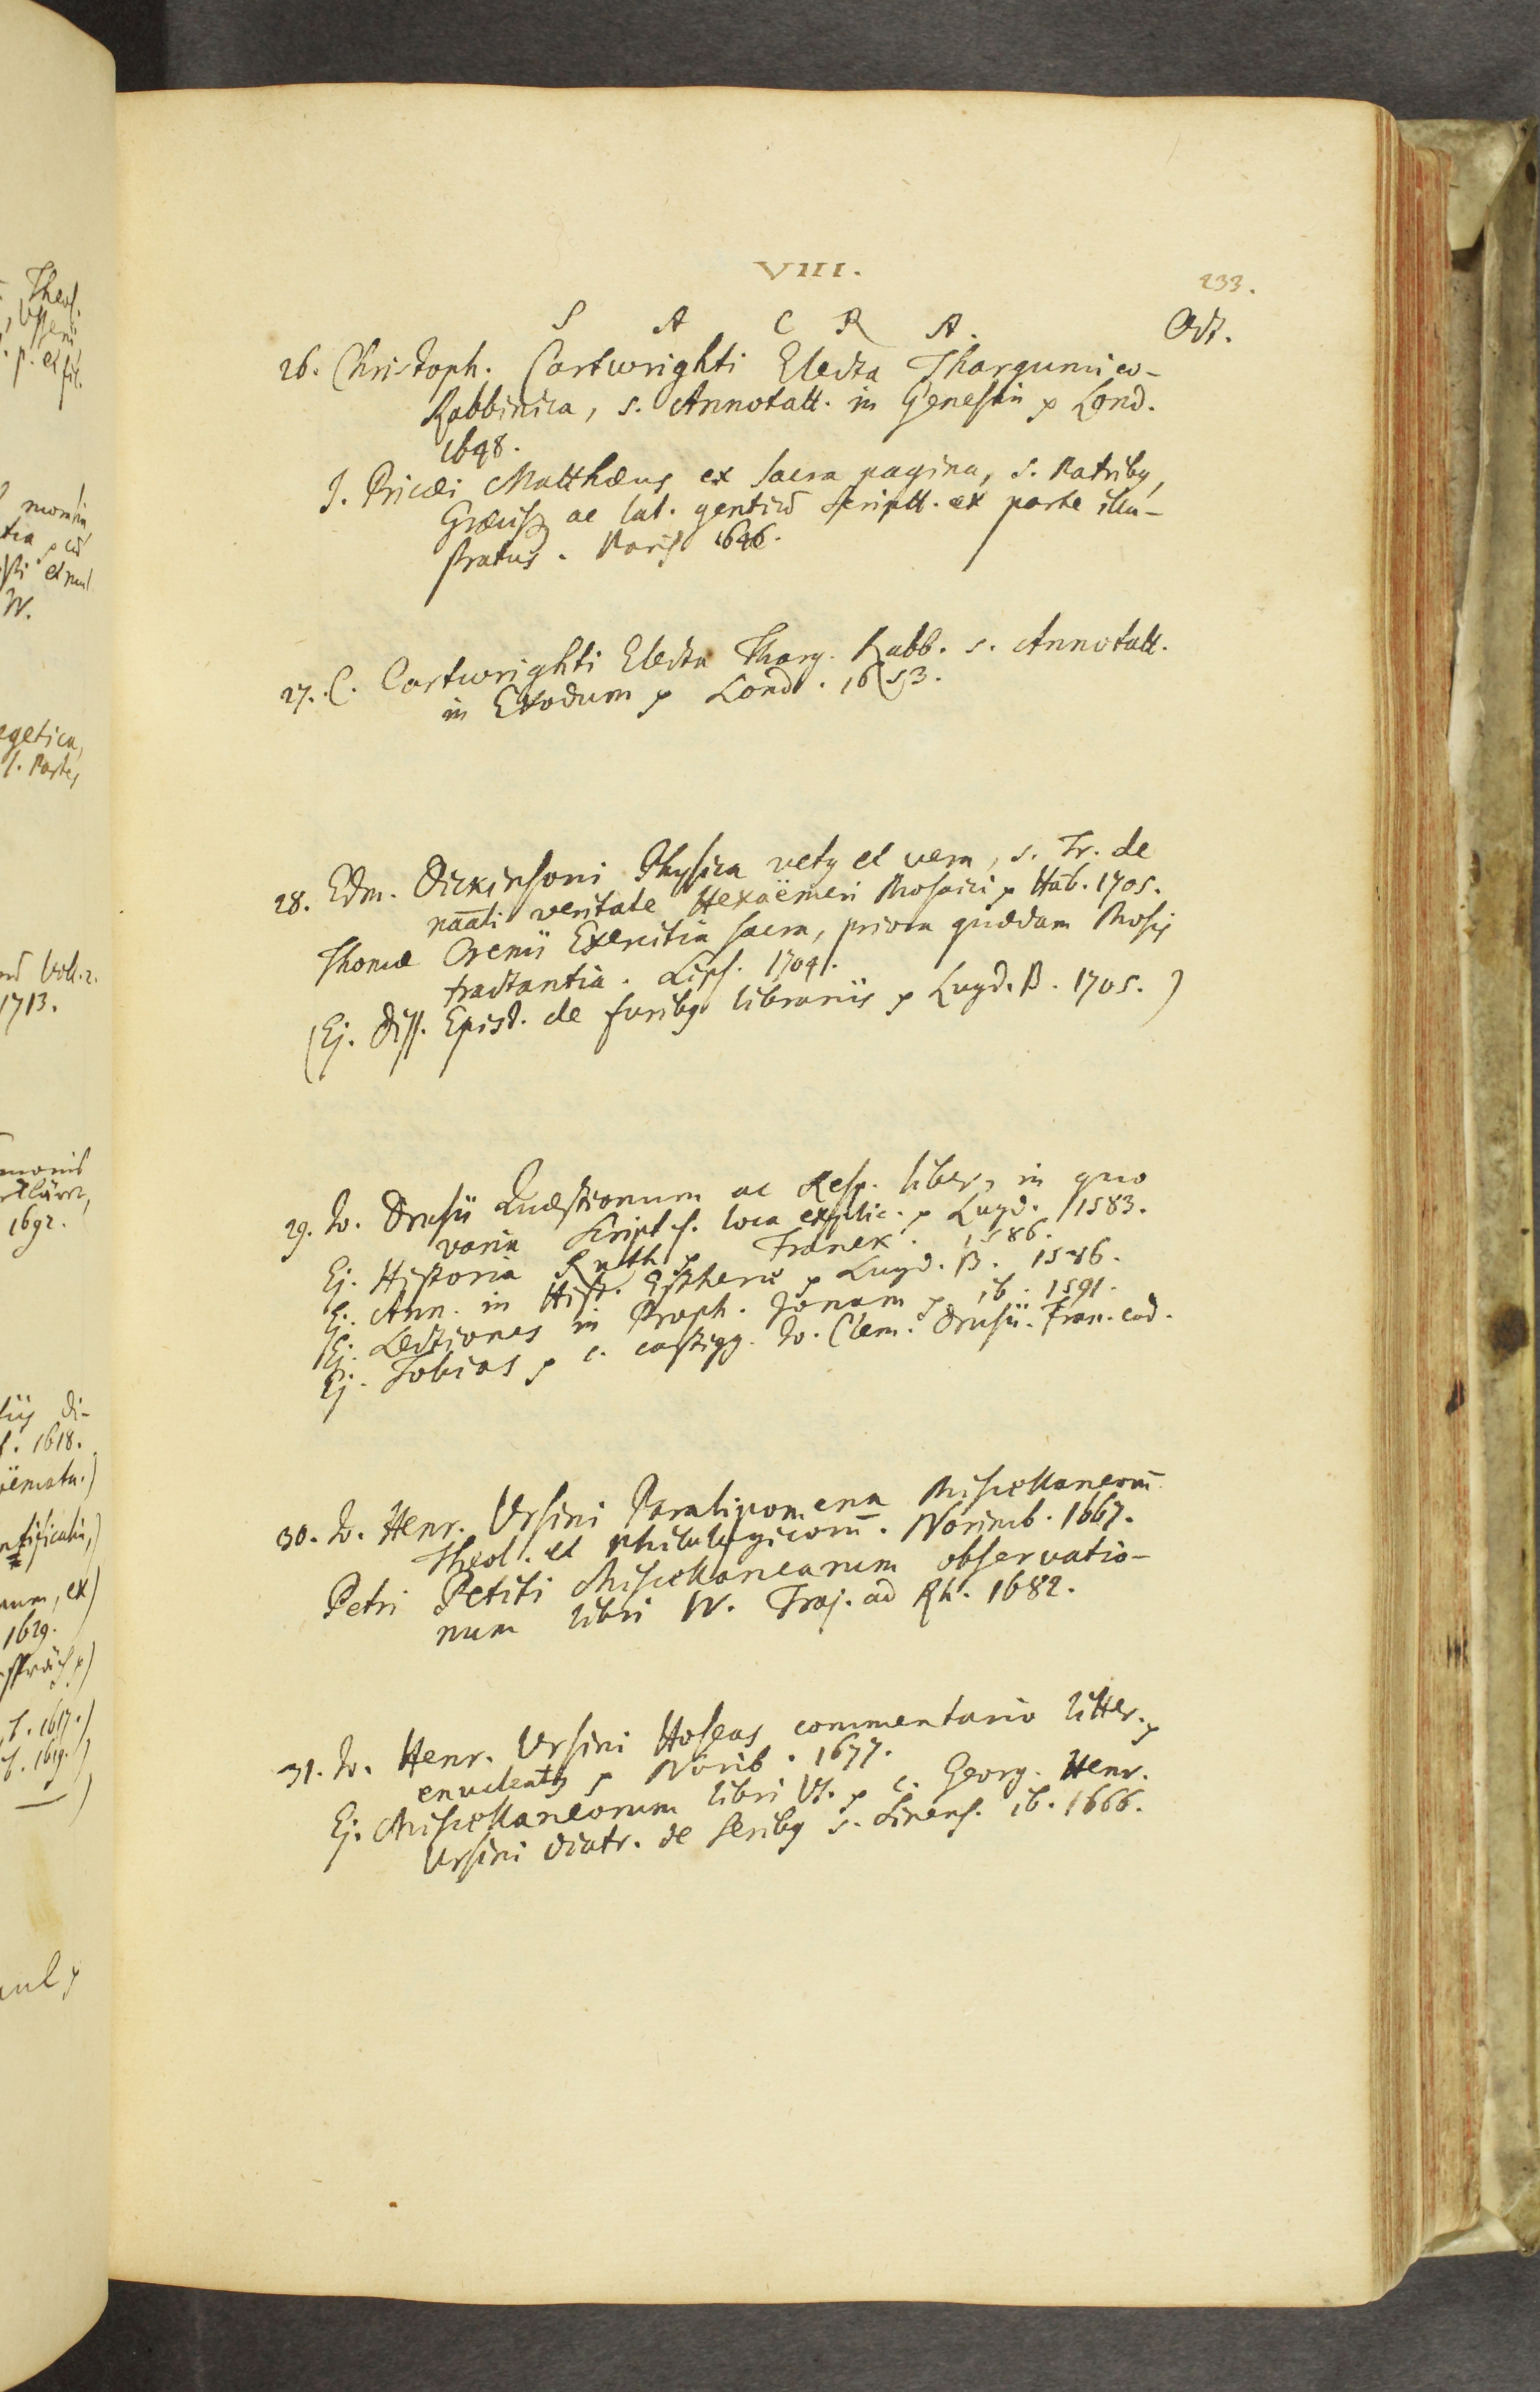 VIII.
233.
S A C R A. Oct.
26. Christoph. Cartwrighti Electa Thargumico-
Rabbinica, s. Annotatt. in Genesin p Lond.
1648.
J. Pricæi Matthæus ex sacra pagina, s. Patribq,
Græcisq ac lat. gentiū scriptt. ex parte illu-
stratus. Paris 1646.
27. C. Cartwrighti Electa Tharg. Rabb. s. Annotatt.
in Exodum p Lond. 1653.
28. Edm. Dickinsoni Physica vetq et vera, s. Tr. de
nāāli veritate Hexaëmeri Mosaici p Hāb. 1705.
Thomæ Crenii Exercitia sacra, priora quædam Mosis
tractantia. Lips. 1704.
(Ej. Diss. Epist. de furibq librariis p Lugd. B. 1705.)
29. Jo. Drusii Quæstionum ac Resp. liber, in quo
varia Script. s. loca explic. p Lugd. 1583.
Ej. Historia Ruth p Franek. 1586.
Ej. Ann. in Hist. Estheræ p Lugd. B. 1586.
Ej. Lectiones in Proph. Jonam p ib. 1591.
Ej. Tobias p c. castigg. Jo. Clem. Drusii. Fran. eod.
30. Jo. Henr. Ursini Paralipomena Miscellaneorū
Theol. et philologicorū. Norimb. 1667.
Petri Petiti Miscellanearum observatio-
num libri IV. Traj. ad Rh. 1682.
31. Jo. Henr. Ursini Hoseas commentario litter. p
enucleatq p Norib. 1677.
Ej. Miscellaneorum libri VI. p c. Georg. Henr.
Ursini diatr. de Seribq s. Sinens. ib. 1666.
1713.
1692.
di-
1618.
1629.
1617.)
1619.)